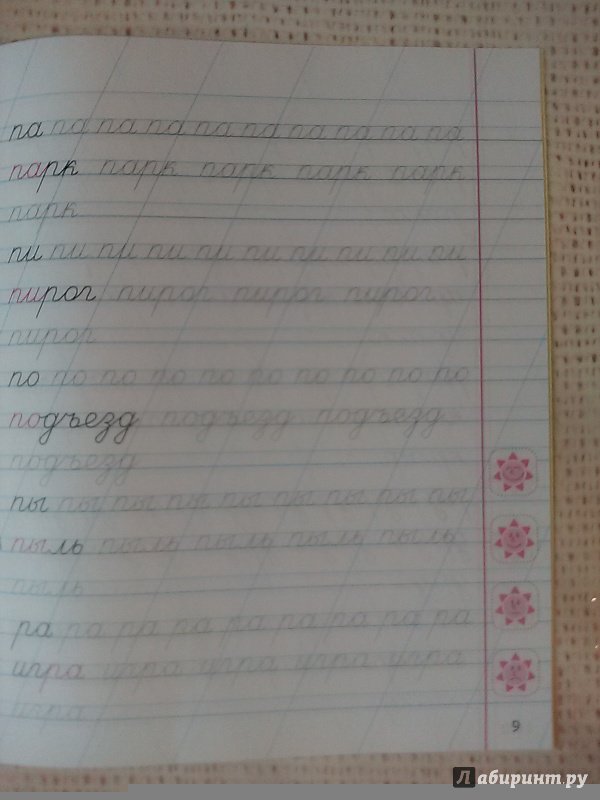 па па па па па па па па па па
парк парк парк парк парк
парк
пи пи пи пи пи пи пи пи пи пи
пирог пирог пирог пирог
пирог
по по по по по по по по по по
подъезд подъезд подъезд
подъезд
пы пы пы пы пы пы пы пы пы
пыль пыль пыль пыль пыль
пыль
ра ра ра ра ра ра ра ра ра
игра игра игра игра игра
игра
9
Лабиринт.ру